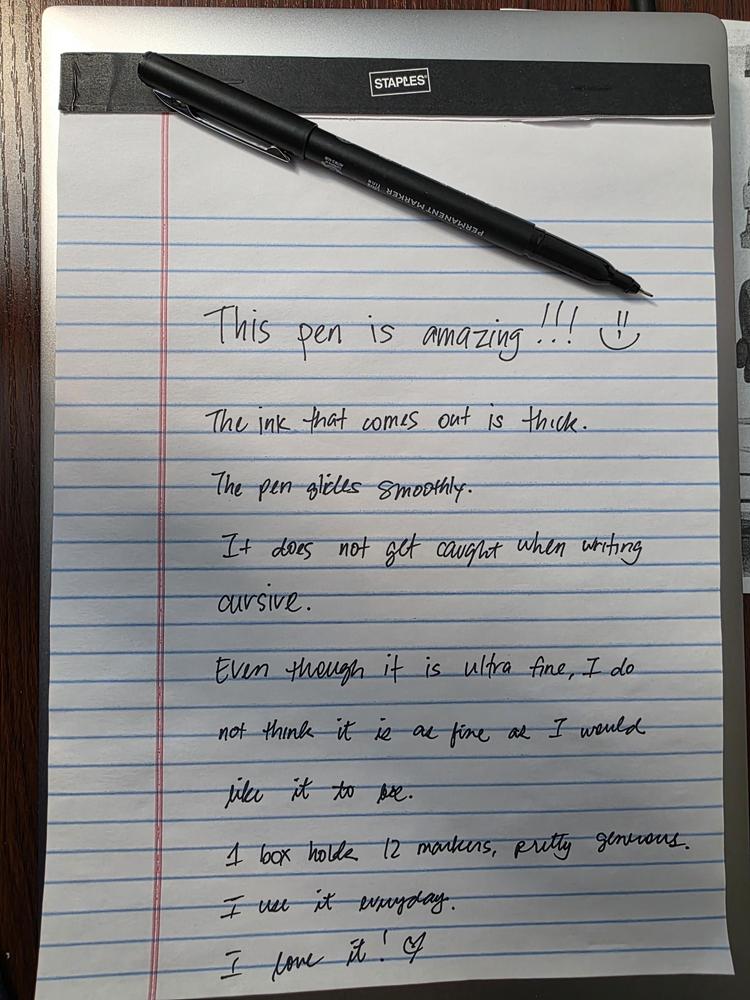 STAPLES
PERMANENT MARKER
This pen is amazing!!!
The ink that comes out is thick.
The pen glides smoothly.
It does not get caught when writing
cursive.
Even though it is ultra fine, I do
not think it is as fine as I would
like it to be.
1 box holds 12 markers, pretty generous.
I use it everyday.
I love it!